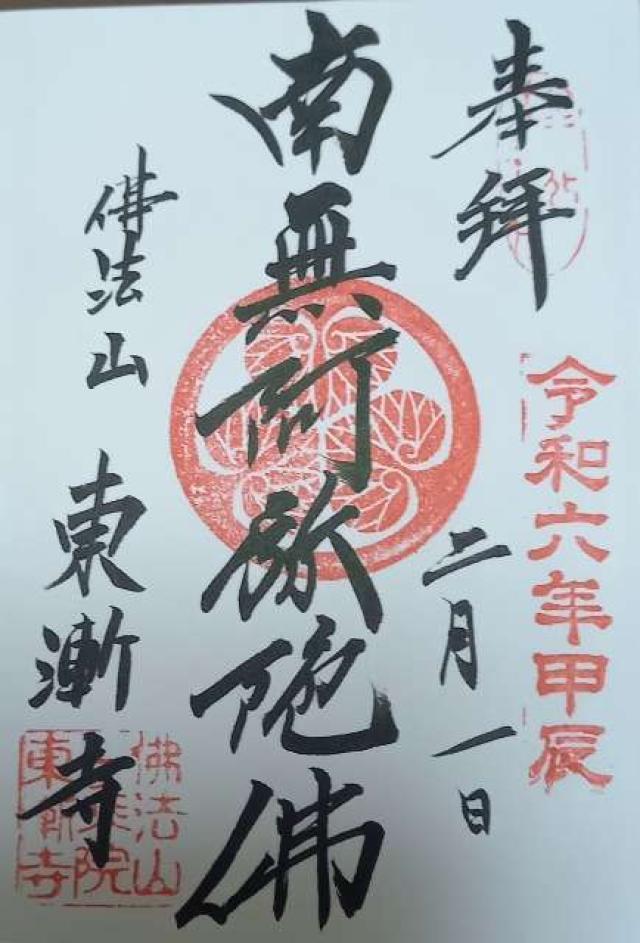 奉拝
令和六年甲辰
二月一日
南無阿弥陀佛
佛法山
東漸寺
佛法山
院
東漸寺